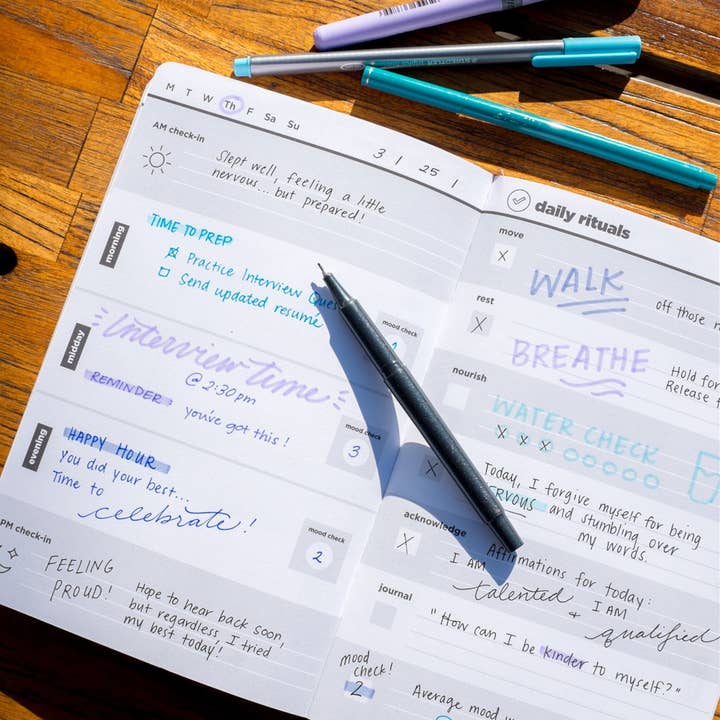 M T W Th F Sa Su
3 1 25 1
AM check-in
Slept well, feeling a little
nervous... but prepared!
morning
TIME TO PREP
Practice Interview Ques
Send updated resumé
mood check
midday
Interview time
@ 2:30pm
REMINDER
you've got this!
mood check
3
evening
HAPPY HOUR
You did your best...
Time to
celebrate!
mood check
2
PM check-in
FEELING
PROUD!
Hope to hear back soon,
but regardless, I tried
my best today!
daily rituals
move
X
WALK
off those n
rest
X
BREATHE
Hold for
Release t
nourish
WATER CHECK
X X X
X
Today, I forgive myself for being
ERVOUS and stumbling over
my words.
acknowledge
X
Affirmations for today:
I AM
talented + I AM
qualified
journal
"How can I be kinder to myself?"
mood
check!
2
Average mood w